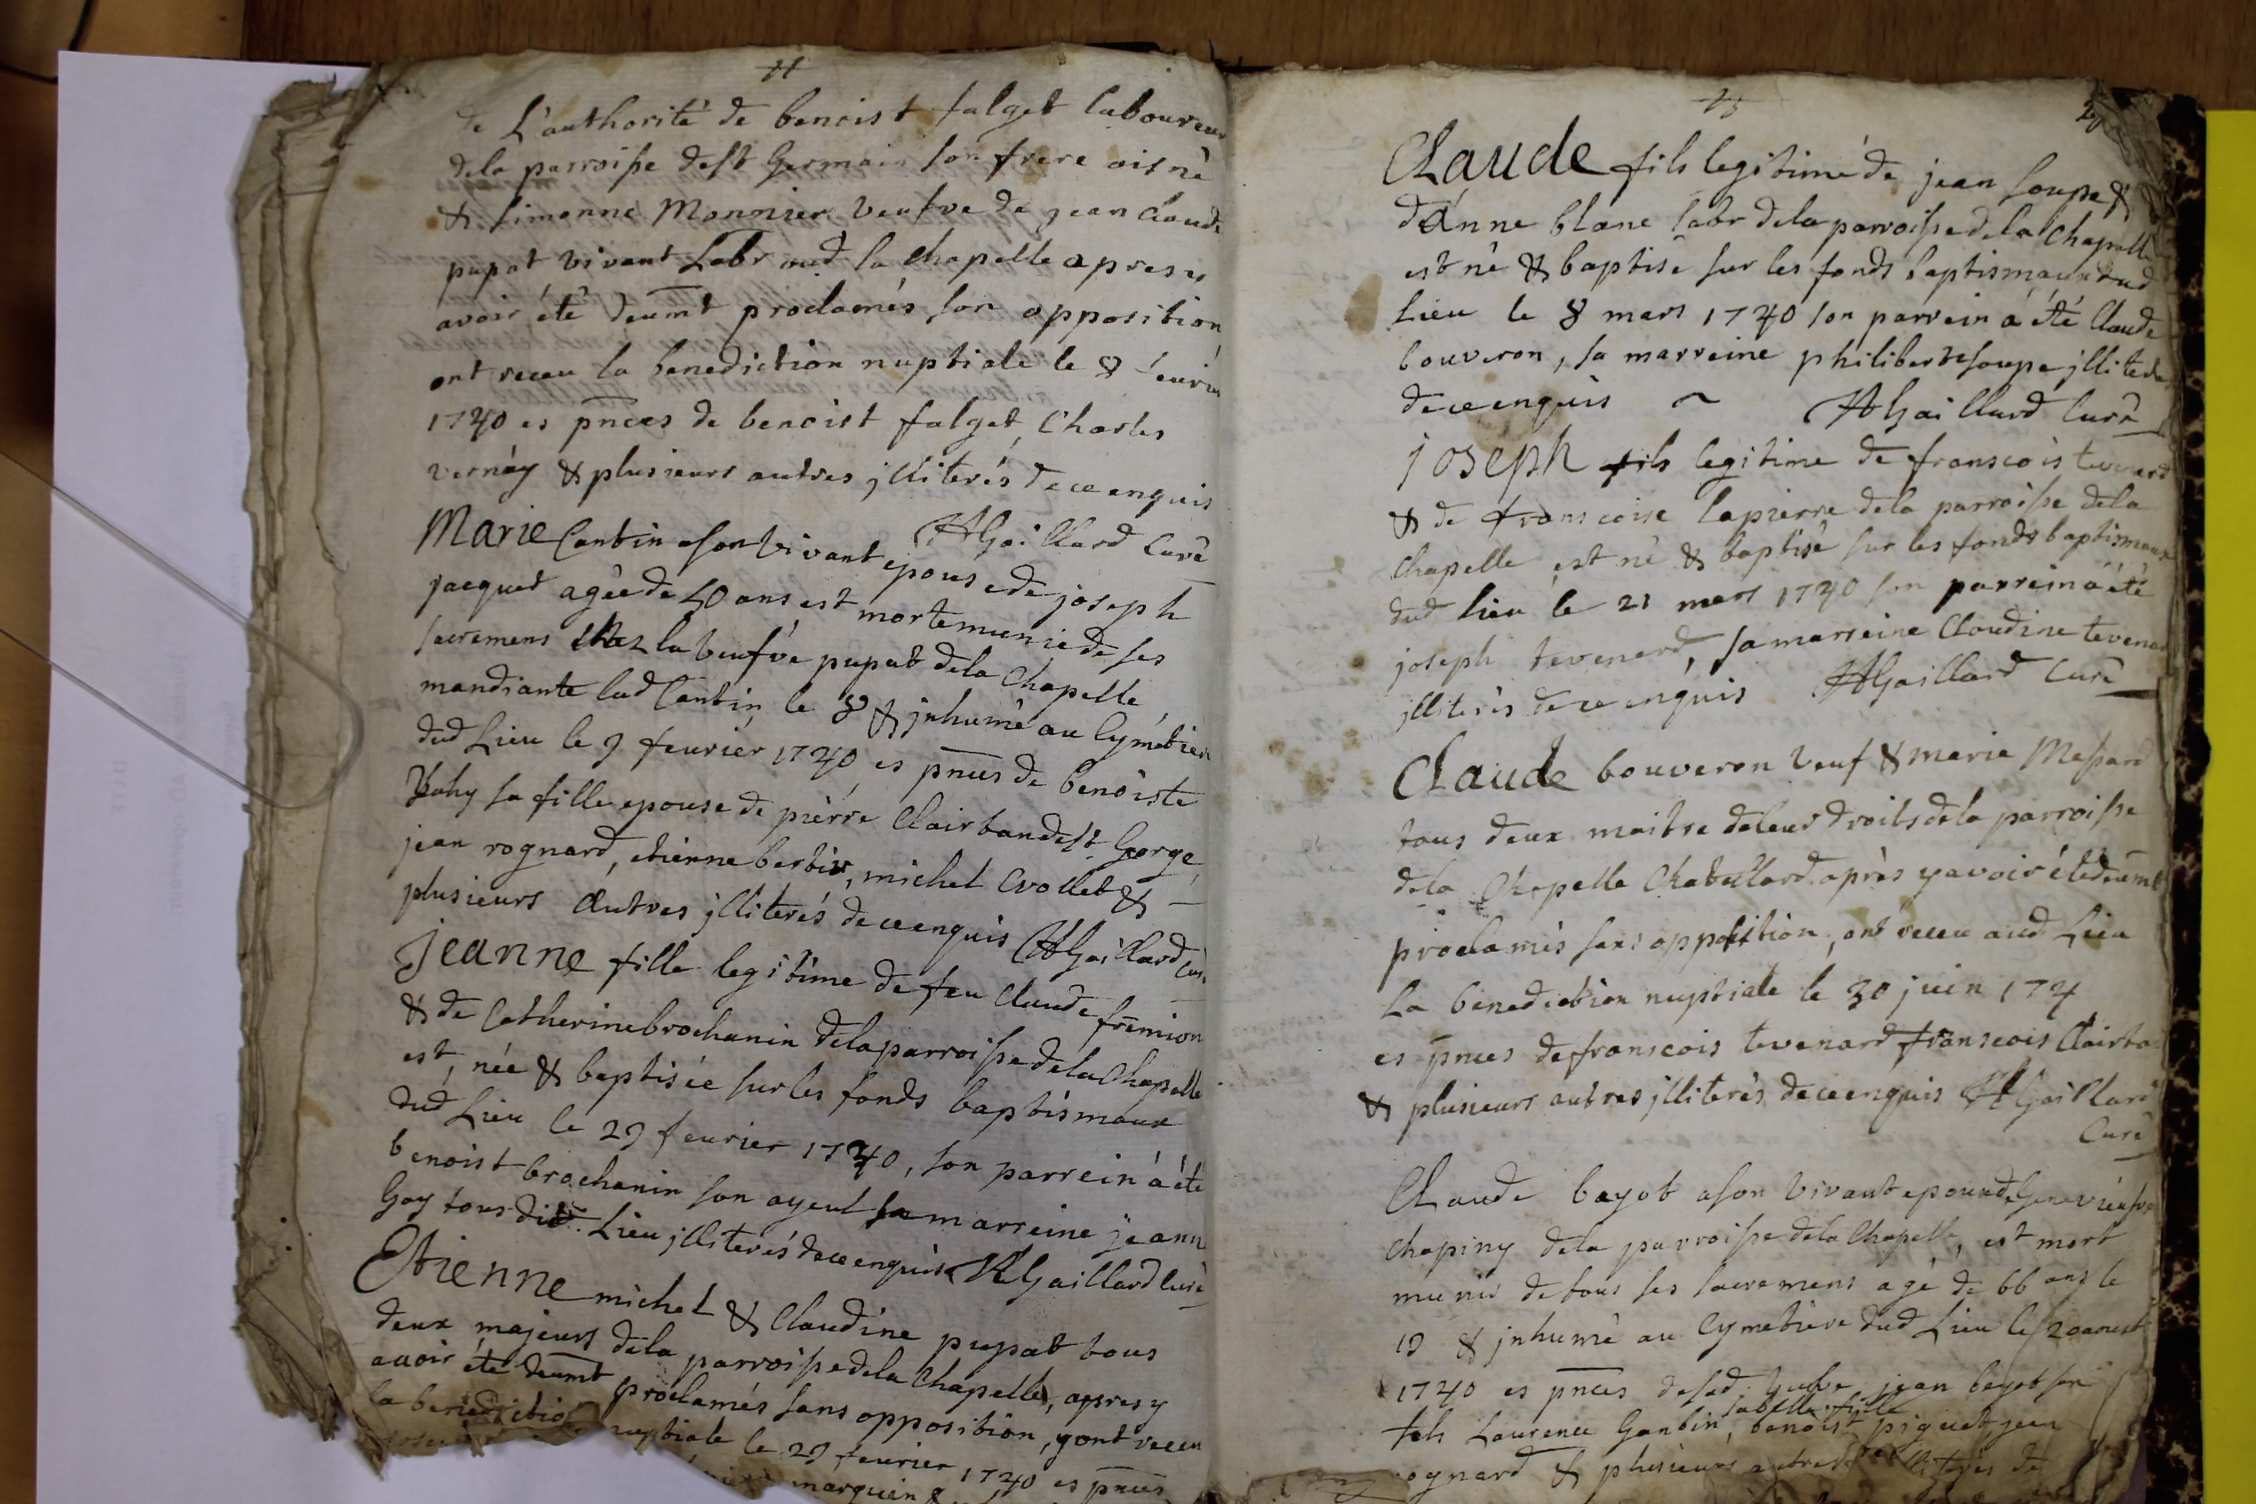 de L'authorité de benoist falget laboureur
dela parroisse de st Germain son frere aisné
& simonne Monnier veufve de jean claude
pupat vivant Labr aud la chapelle apres y
avoir été deumt proclamés san opposition,
ont receu la benediction nuptiale le 8 feurier
1740 es pnces de benoist falget, Charles
vernay & plusieurs autres jlliterés de ce enquis
HGaillard Curé
Marie Cantin a son vivant epouse de joseph
jacquet agée de 40 ans, est morte munie de ses
sacremens chez la veufve pupat dela Chapelle,
mandiante lad Cantin le 8 & jnhumé au Cymetiere
dud Lieu le 9 feurier 1740 es pnces de benoiste
sa fille epouse de pierre Clairtan de st George,
jean rognard, etienne berbiv, michel Crollet &
plusieurs Autres jlliterés de ce enquis HGaillard Curé
jeanne fille legitime de feu Claude fremion
& de Catherine brochanin dela parroisse dela Chapelle
est, née & baptisée sur les fonds baptismaux
dud Lieu le 29 feurier 1740, son parrein a été
benoist brochanin son ayeul sa marreine jeanne
Gay tous dud. Lieu jlliterés de ce enquis HGaillard Curé
Etienne michel & Claudine pupat tous
deux majeurs dela parroisse dela Chapelle, apres y
avoir été deumt proclamés sans opposition, y ont receu
la benediction nuptiale le 29 feurier 1740 es pnces
Claude fils legitime de jean soupe &
d'Anne blanc labr dela parroisse dela Chapelle
est né & baptisé sur les fonds baptismaux dud
Lieu le 8 mars 1740 son parrein a été Claude
bouveron, sa marreine philiberte soupe jlliterés
de ce enquis ~ HGaillard Curé
joseph fils legitime de franscois tevenard
& de franscoise lapierre dela parroisse dela
Chapelle est né & baptisé sur les fonds baptismaux
dud lieu le 21 mars 1740 son parrein a été
joseph tevenard, sa marreine Claudine tevenard
jlliterés de ce enquis HGaillard Curé
Claude bouveron veuf & marie Massard
tous deux maitre de leur droits dela parroisse
dela Chapelle Chatellard après y avoir été deumt
proclamés sans opposition, ont receu aud Lieu
La benediction nuptiale le 30 juin 174
es pnces de franscois tevenard franscois Clairta
& plusieurs autres jlliterés de ce enquis HGaillard
Curé
Claude bayot a son vivant epoux de Genevieufve
Chapiny dela parroisse dela Chapelle, est mort
munis de tous ses sacremens agé de 66 ans le
19 & jnhumé au Cymetiere dud Lieu le 20 aoust
1740 es pnces de sad. veufve jean bayot son
fils Laurence Gantin, sa belle fille benoist piguet jean
rognard & plusieurs autres jlliterés de